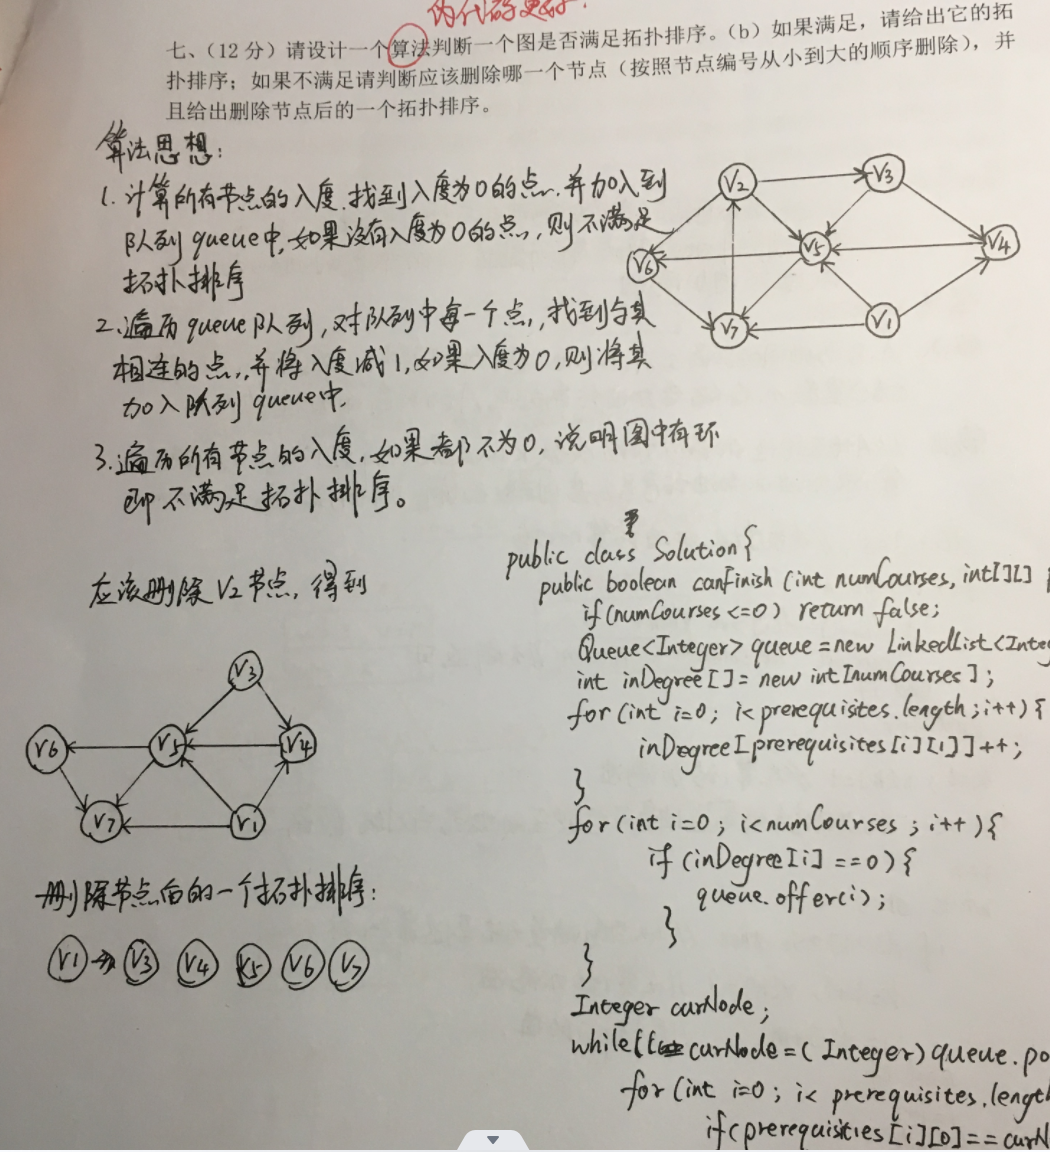 伪代码更好！
七、（12 分）请设计一个算法判断一个图是否满足拓扑排序。（b）如果满足，请给出它的拓
扑排序；如果不满足请判断应该删除哪一个节点（按照节点编号从小到大的顺序删除），并
且给出删除节点后的一个拓扑排序。
算法思想：
1. 计算所有节点的入度，找到入度为0的点，并加入到
队列queue中，如果没有入度为0的点，则不满足
拓扑排序
2、遍历queue队列，对队列中每一个点，找到与其
相连的点，并将入度减1，如果入度为0，则将其
加入队列queue中。
3.遍历所有节点的入度，如果都不为0，说明图中有环
即不满足拓扑排序。
V2 V3
V6 V5 V4
V7 V1
应该删除V2节点，得到
V3
V6 V5 V4
V7 V1
删除节点后的一个拓扑排序：
V1 → V3 V4 V5 V6 V7
public class Solution{
public boolean canFinish (int numCourses, int[][] p
if(numCourses <=0) return false;
Queue<Integer> queue = new LinkedList<Integ
int inDegree[] = new int[numCourses];
for (int i=0; i<prerequisites.length; i++){
inDegree[prerequisites[i][1]]++;
}
for(int i=0; i<numCourses; i++){
if (inDegree[i] ==0){
queue.offer(i);
}
}
Integer curNode;
while(( curNode = (Integer) queue.po
for (int i=0; i< prerequisites.length
if(prerequisities[i][0]== curN